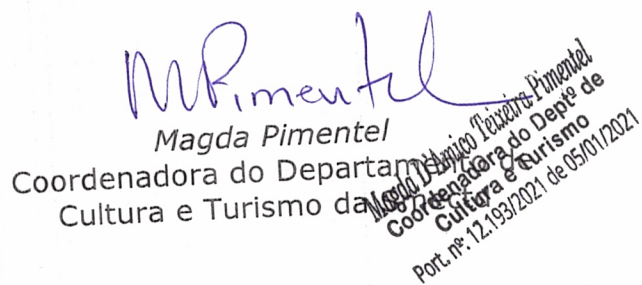 MPimentel
Magda Pimentel
Coordenadora do Departamento de
Cultura e Turismo da
Magda D'Amico Teixeira Pimentel
Coordenadora do Deptº de
Cultura e Turismo
Port. nº. 12.193/2021 de 05/01/2021